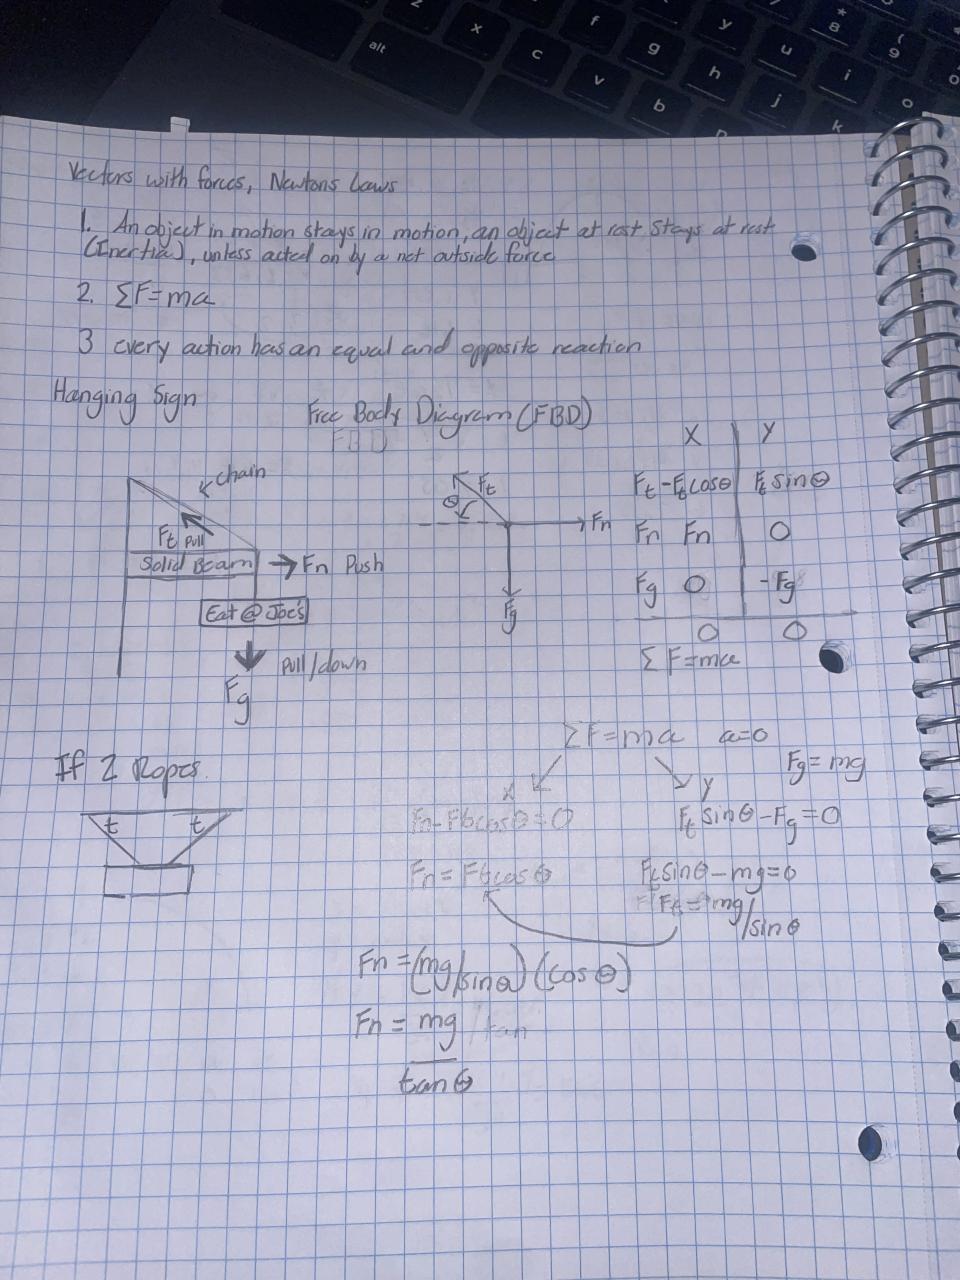 alt
z
x
c
v
b
f
g
h
j
k
y
u
i
o
*
8
(
9
Vectors with forces, Newtons Laws
1. An object in motion stays in motion, an object at rest stays at rest
(Inertia), unless acted on by a net outside force
2. ΣF=ma
3 every action has an equal and opposite reaction
Hanging Sign
Free Body Diagram (FBD)
FBD
chain
Ft Pull
Solid Beam
Fn Push
Eat @ Joe's
Pull/down
Fg
Ft
θ
Fn
Fg
X Y
Ft -Ftcosθ Ftsinθ
Fn Fn 0
Fg 0 -Fg
0 0
Σ F=ma
If 2 Ropes.
t t
ΣF=ma a=0
Fg=mg
X
Y
Fn-Ftcosθ=0
Ft sinθ-Fg=0
Fn=Ftcosθ
Ftsinθ-mg=0
Ft=mg/sinθ
Fn=(mg/sinθ)(cosθ)
Fn = mg /tan
tanθ